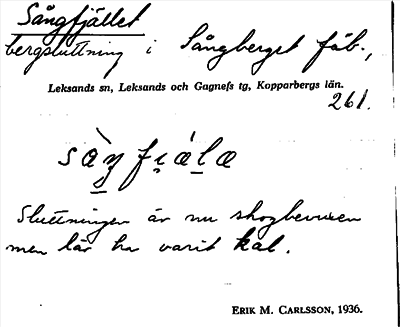 Sångfjället
bergsluttning i Sångberget fäb.,
Leksands sn, Leksands och Gagnefs tg, Kopparbergs län.
261.
Sluttningen är nu skogbevuxen
men lär ha varit kal.
ERIK M. CARLSSON, 1936.